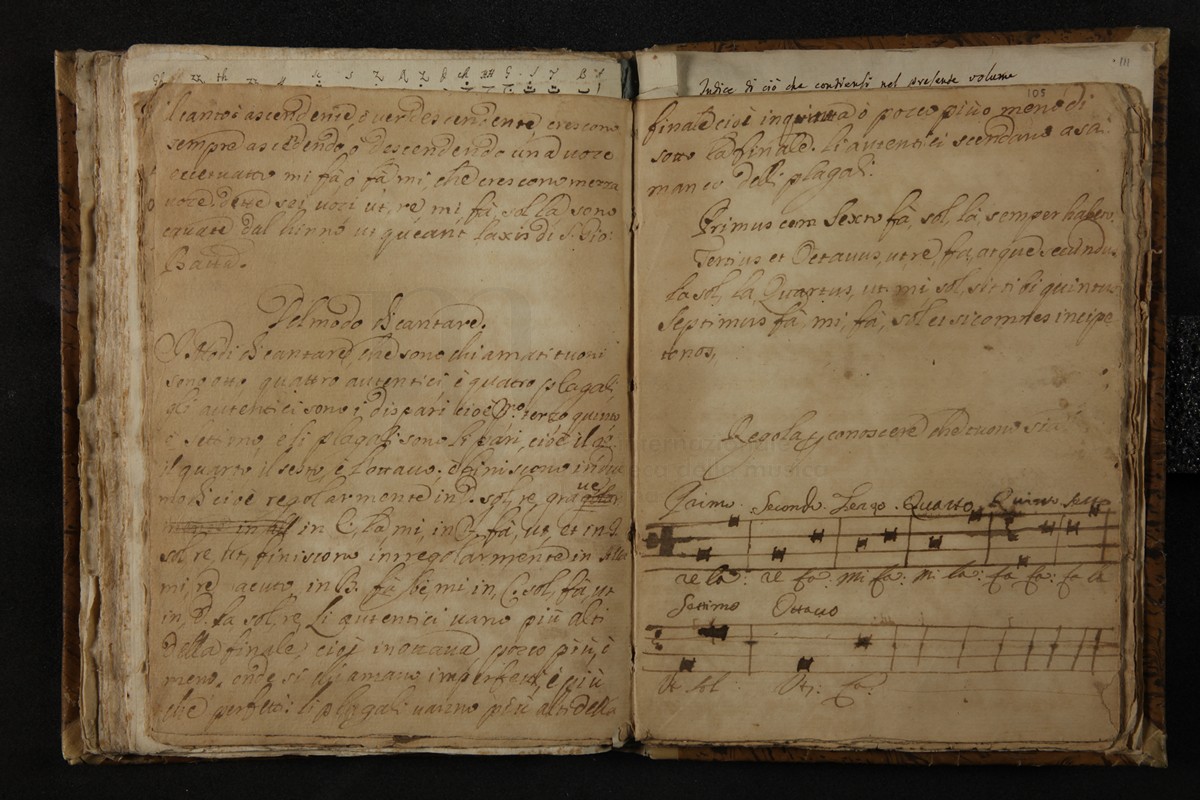 il canto ascendente, o ver descendente, crescono
sempre ascendendo, o descendendo una voce
eccettuatto mi fà, ò fà mi, che crescono mezza
voce. dette sei voci ut, re mi fà, sol la sono
cavate dal hinno ut queant laxis di S. Gio:
Batta.
Del modo di cantare.
I Modi di cantare, che sono chiamati tuoni
sono otto quattro autentici è quatro plagali,
gli autentici sono i dispari cioè P.º terzo quinto
è settimo, è li plagali sono li pari, cioè il
il quarto, il sesto, è l'ottavo: è finiscono in due
modi cioè regolarmente in D. sol, re,
in E, la, mi, in F, fà, ut, et in G.
sol, re, ut, finiscono irregolarmente in Ala
mi, re acuto, in B. fà, be, mi in, C. sol, fà, ut
in, D. la sol, re, Li autentici vano più alti
della finale, cioè in ottava poco più, ò
meno, onde si chiamano imperfetti, è più
che perfetti: li plagali vanno più alti della
Indice di ciò che contiensi nel presente volume
111
105
finale cioè in quinta ò poco più o meno di
sotto la finale. Li autentici scendano a sa
manco deli plagali.
Primus cum Sexto fà, sol, la semper habeto.
Tertius et Octavus, ut re, fa, atque secundus
la sol, la Quartus, ut mi sol, sit tibi quintus
Septimus fà, mi, fà, sol ei sic omnes incipe
tonos,
Regola p conoscere che tuono sia
Primo. Secondo Terzo. Quarto, Quinto sesto
re la: re fa: mi fa: mi la: fa fa: fa la
Settimo Ottavo
Ut sol Ut: fa: